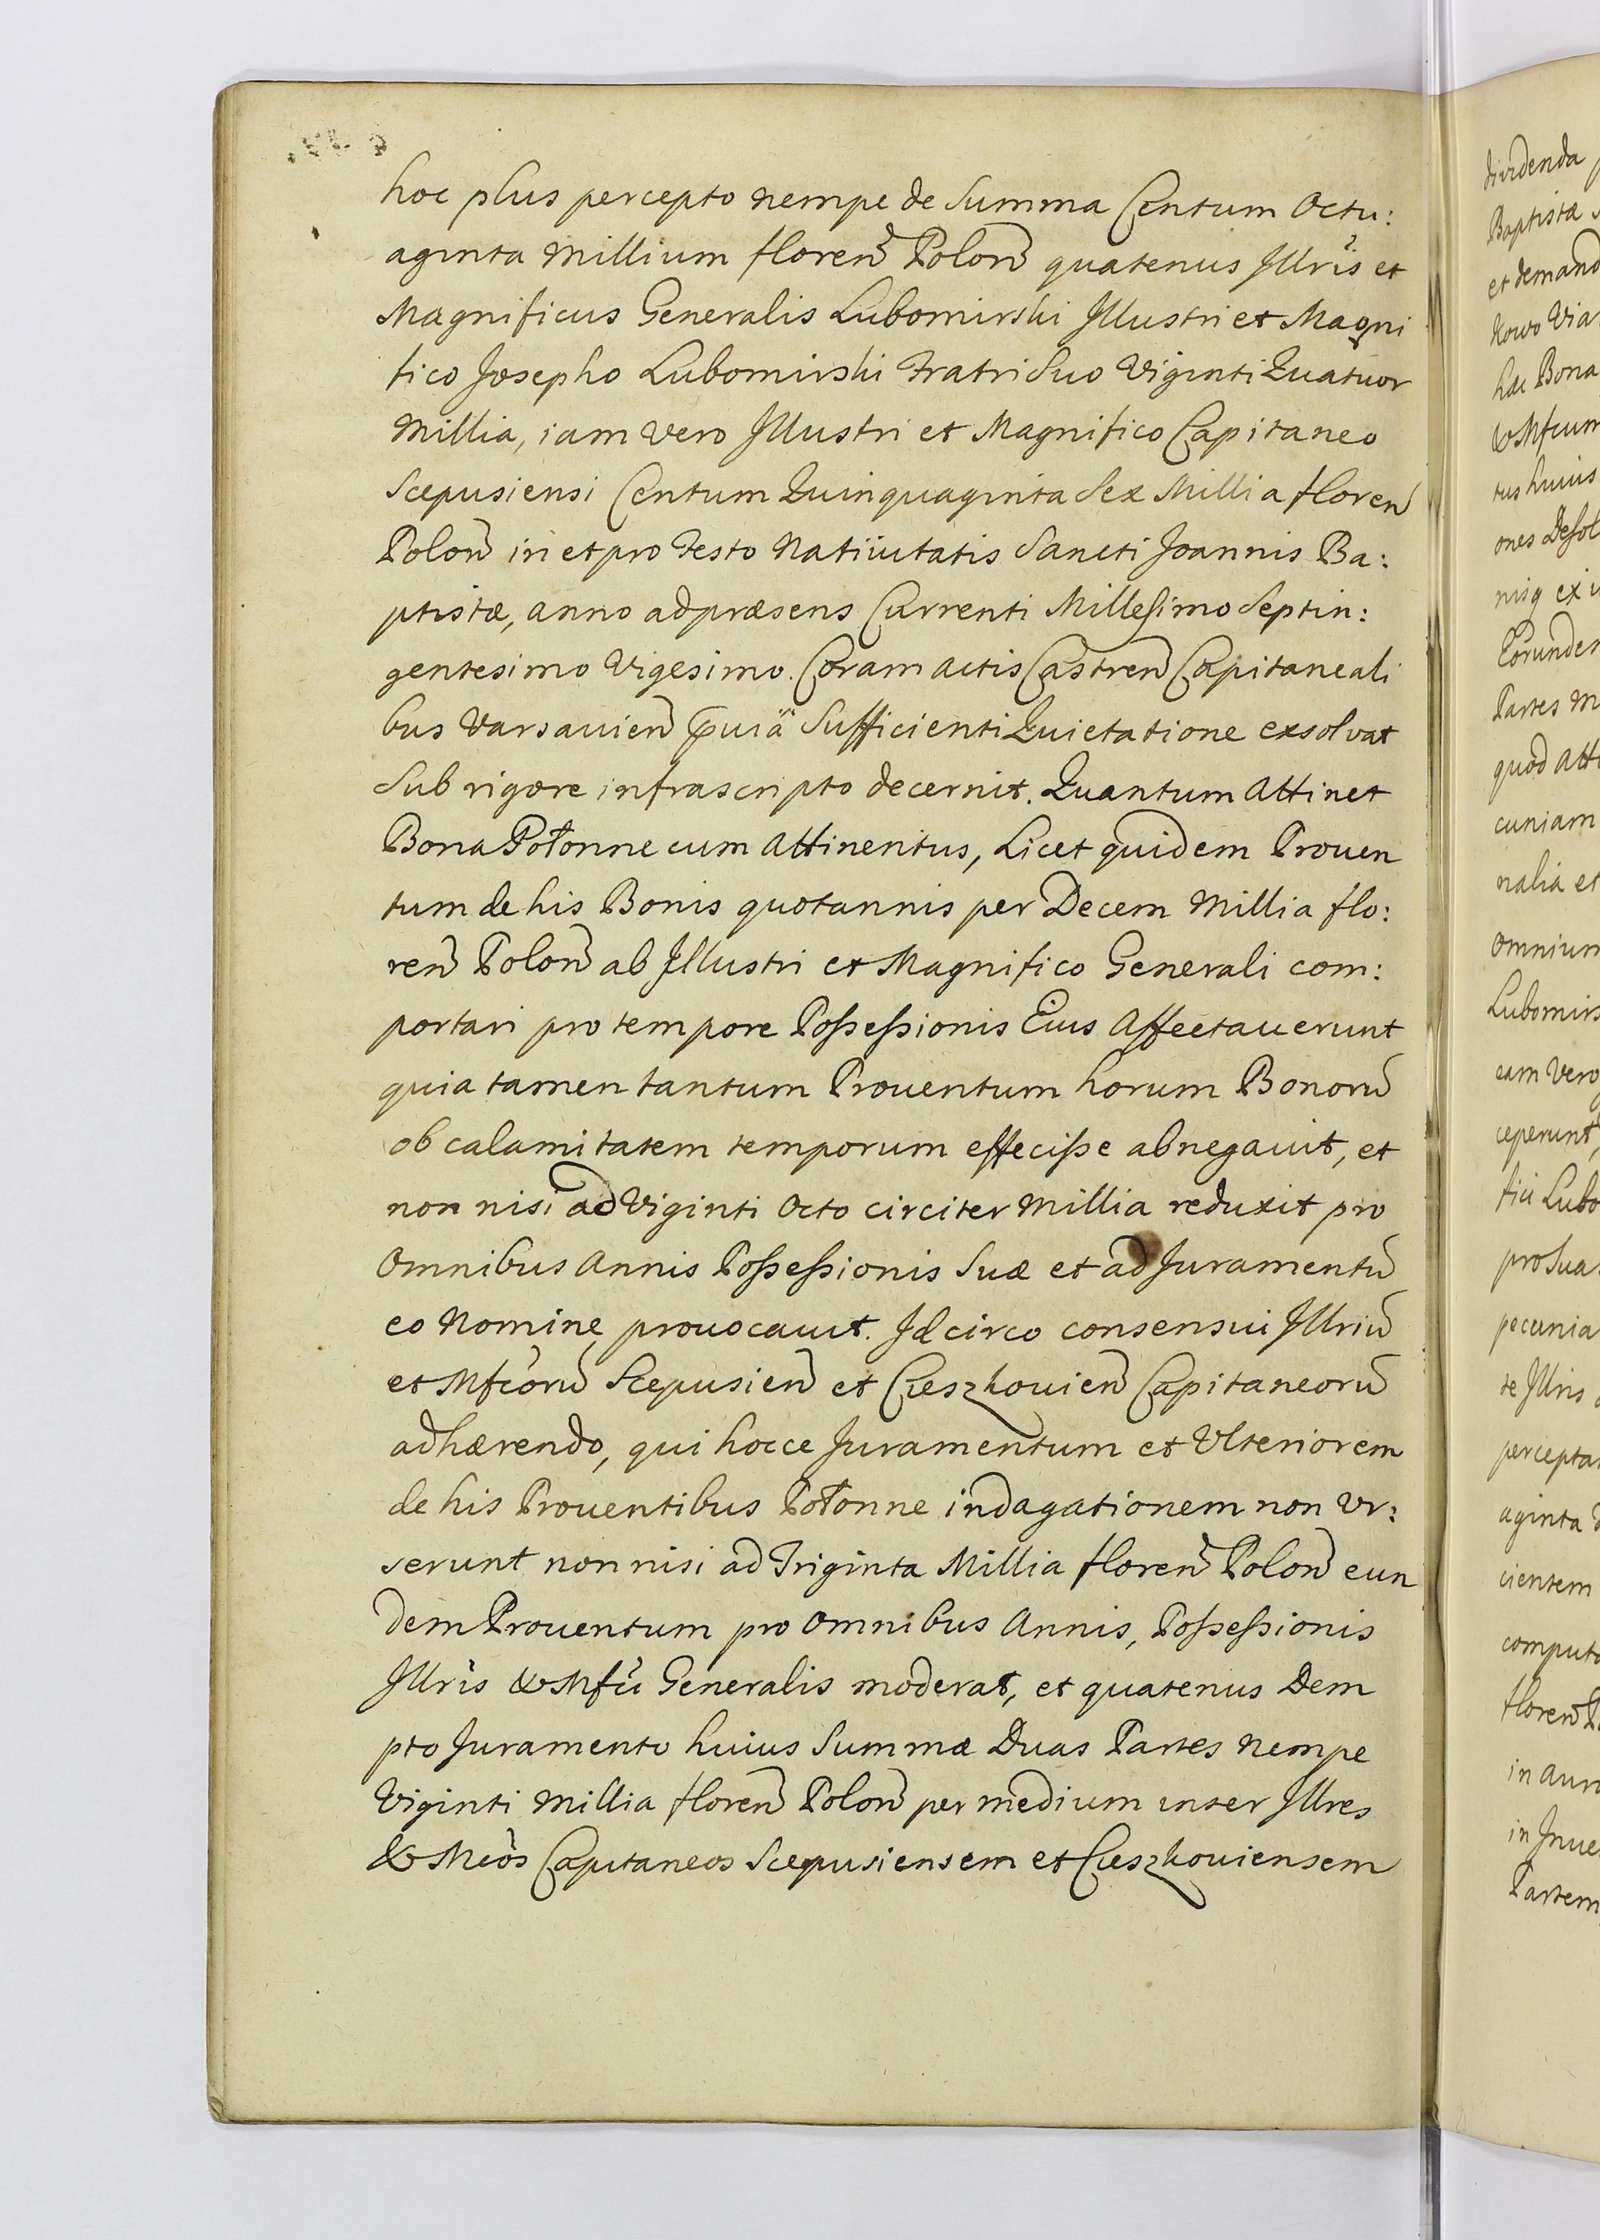 hoc plus percepto nempe de Summa Centum Octu:
aginta Millium floreñ Poloñ quatenus Jllris et
Magnificus Generalis Lubomirski Jllustri et Magni
fico Josepho Lubomirski Fratri Suo Viginti Quatuor
Millia, iam vero Jllustri et Magnifico Capitaneo
Scepusiensi Centum Quinquaginta Sex Millia floreñ
Poloñ in et pro Festo Natiuitatis Sancti Joannis Ba:
ptistæ, anno ad præsens Currenti Millesimo Septin:
gentesimo Vigesimo. Coram actis Castreñ Capitaneali
bus Varsauieñ Sufficienti Quietatione exsolvat
Sub rigore infrascripto decernit. Quantum Attinet
Bona Połonne cum Attinentus, Licet quidem Prouen
tum de his Bonis quotannis per Decem Millia flo:
reñ Poloñ ab Jllustri et Magnifico Generali com:
portari pro tempore Possessionis Eius Affectauerunt
quia tamen tantum Prouentum horum Bonorũ
ob calamitatem temporum effecisse abnegauit, et
non nisi ad Viginti Octo circiter Millia reduxit pro
Omnibus Annis Possessionis Suæ et ad Juramentũ
eo Nomine prouocauit. Jdcirco consensui Jllriũ
et Mfcorũ Scepusieñ et Cieszkouieñ Capitaneorũ
adhærendo, qui hocce Juramentum et Vlteriorem
de his Prouentibus Połonne indagationem non Vr:
serunt non nisi ad Triginta Millia floreñ Poloñ eun
dem Prouentum pro Omnibus Annis, Possessionis
Jllris & Mfci Generalis moderat, et quatenus Dem
pto Juramento huius Summæ Duas Partes Nempe
Viginti Millia floreñ Poloñ per medium inter Jllres
& Mcos Capitaneos Scepusiensem et Cieszkouiensem
dividenda
Baptistæ
et demand
Nowo Via
hæ Bona
& Mfcum
tus huius
ones Desol
nisq ex
Eorundem
Partes
quod
cuniam
nalia et
Omnium
Lubomirs
eam Vero
ceperunt,
fici Lubo
pro Sua
pecunia
te Jllris
percepta
aginta
cientem
computa
floreñ
in Auro
in Jnue
Partem